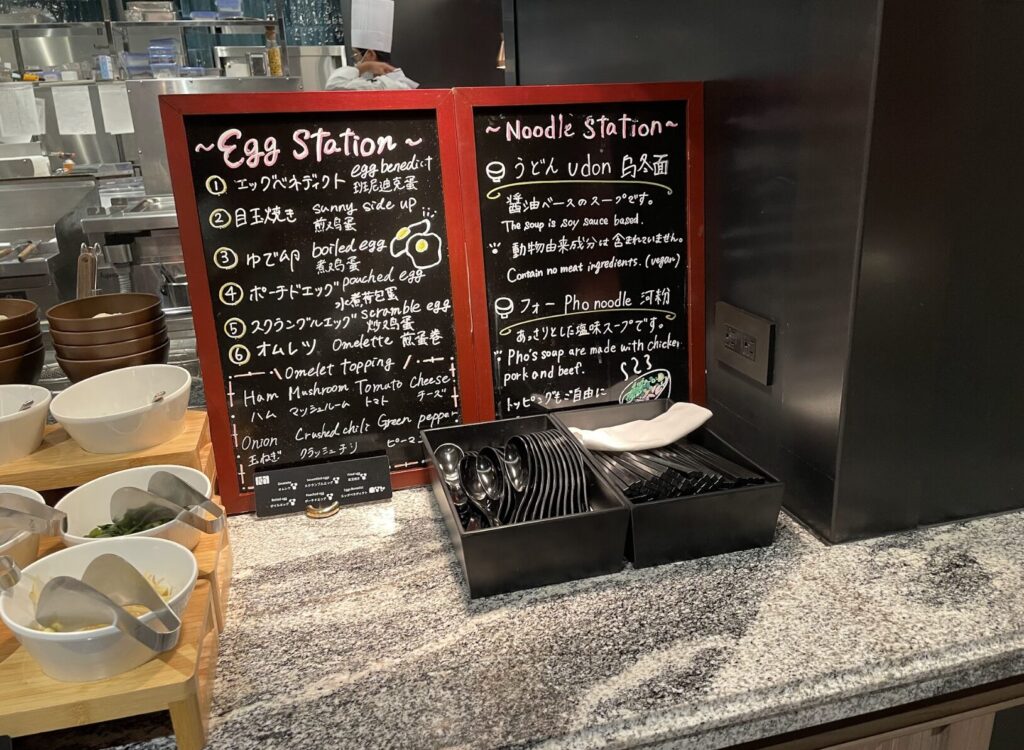 ~Egg Station~
① エッグベネディクト egg benedict
班尼迪克蛋
② 目玉焼き sunny side up
煎鸡蛋
③ ゆで卵 boiled egg
煮鸡蛋
④ ポーチドエッグ pouched egg
水煮荷包蛋
⑤ スクランブルエッグ scramble egg
炒鸡蛋
⑥ オムレツ Omelette 煎蛋卷
Omelet topping
Ham Mushroom Tomato Cheese
ハム マッシュルーム トマト チーズ
Onion Crushed chili Green pepper
玉ねぎ クラッシュチリ ピーマン
~Noodle Station~
うどん udon 乌冬面
醤油ベースのスープです。
The soup is soy sauce based.
動物由来成分は含まれていません。
Contain no meat ingredients. (vegan)
フォー Pho noodle 河粉
あっさりとした塩味スープです。
Pho's soup are made with chicken
pork and beef.
トッピングもご自由に